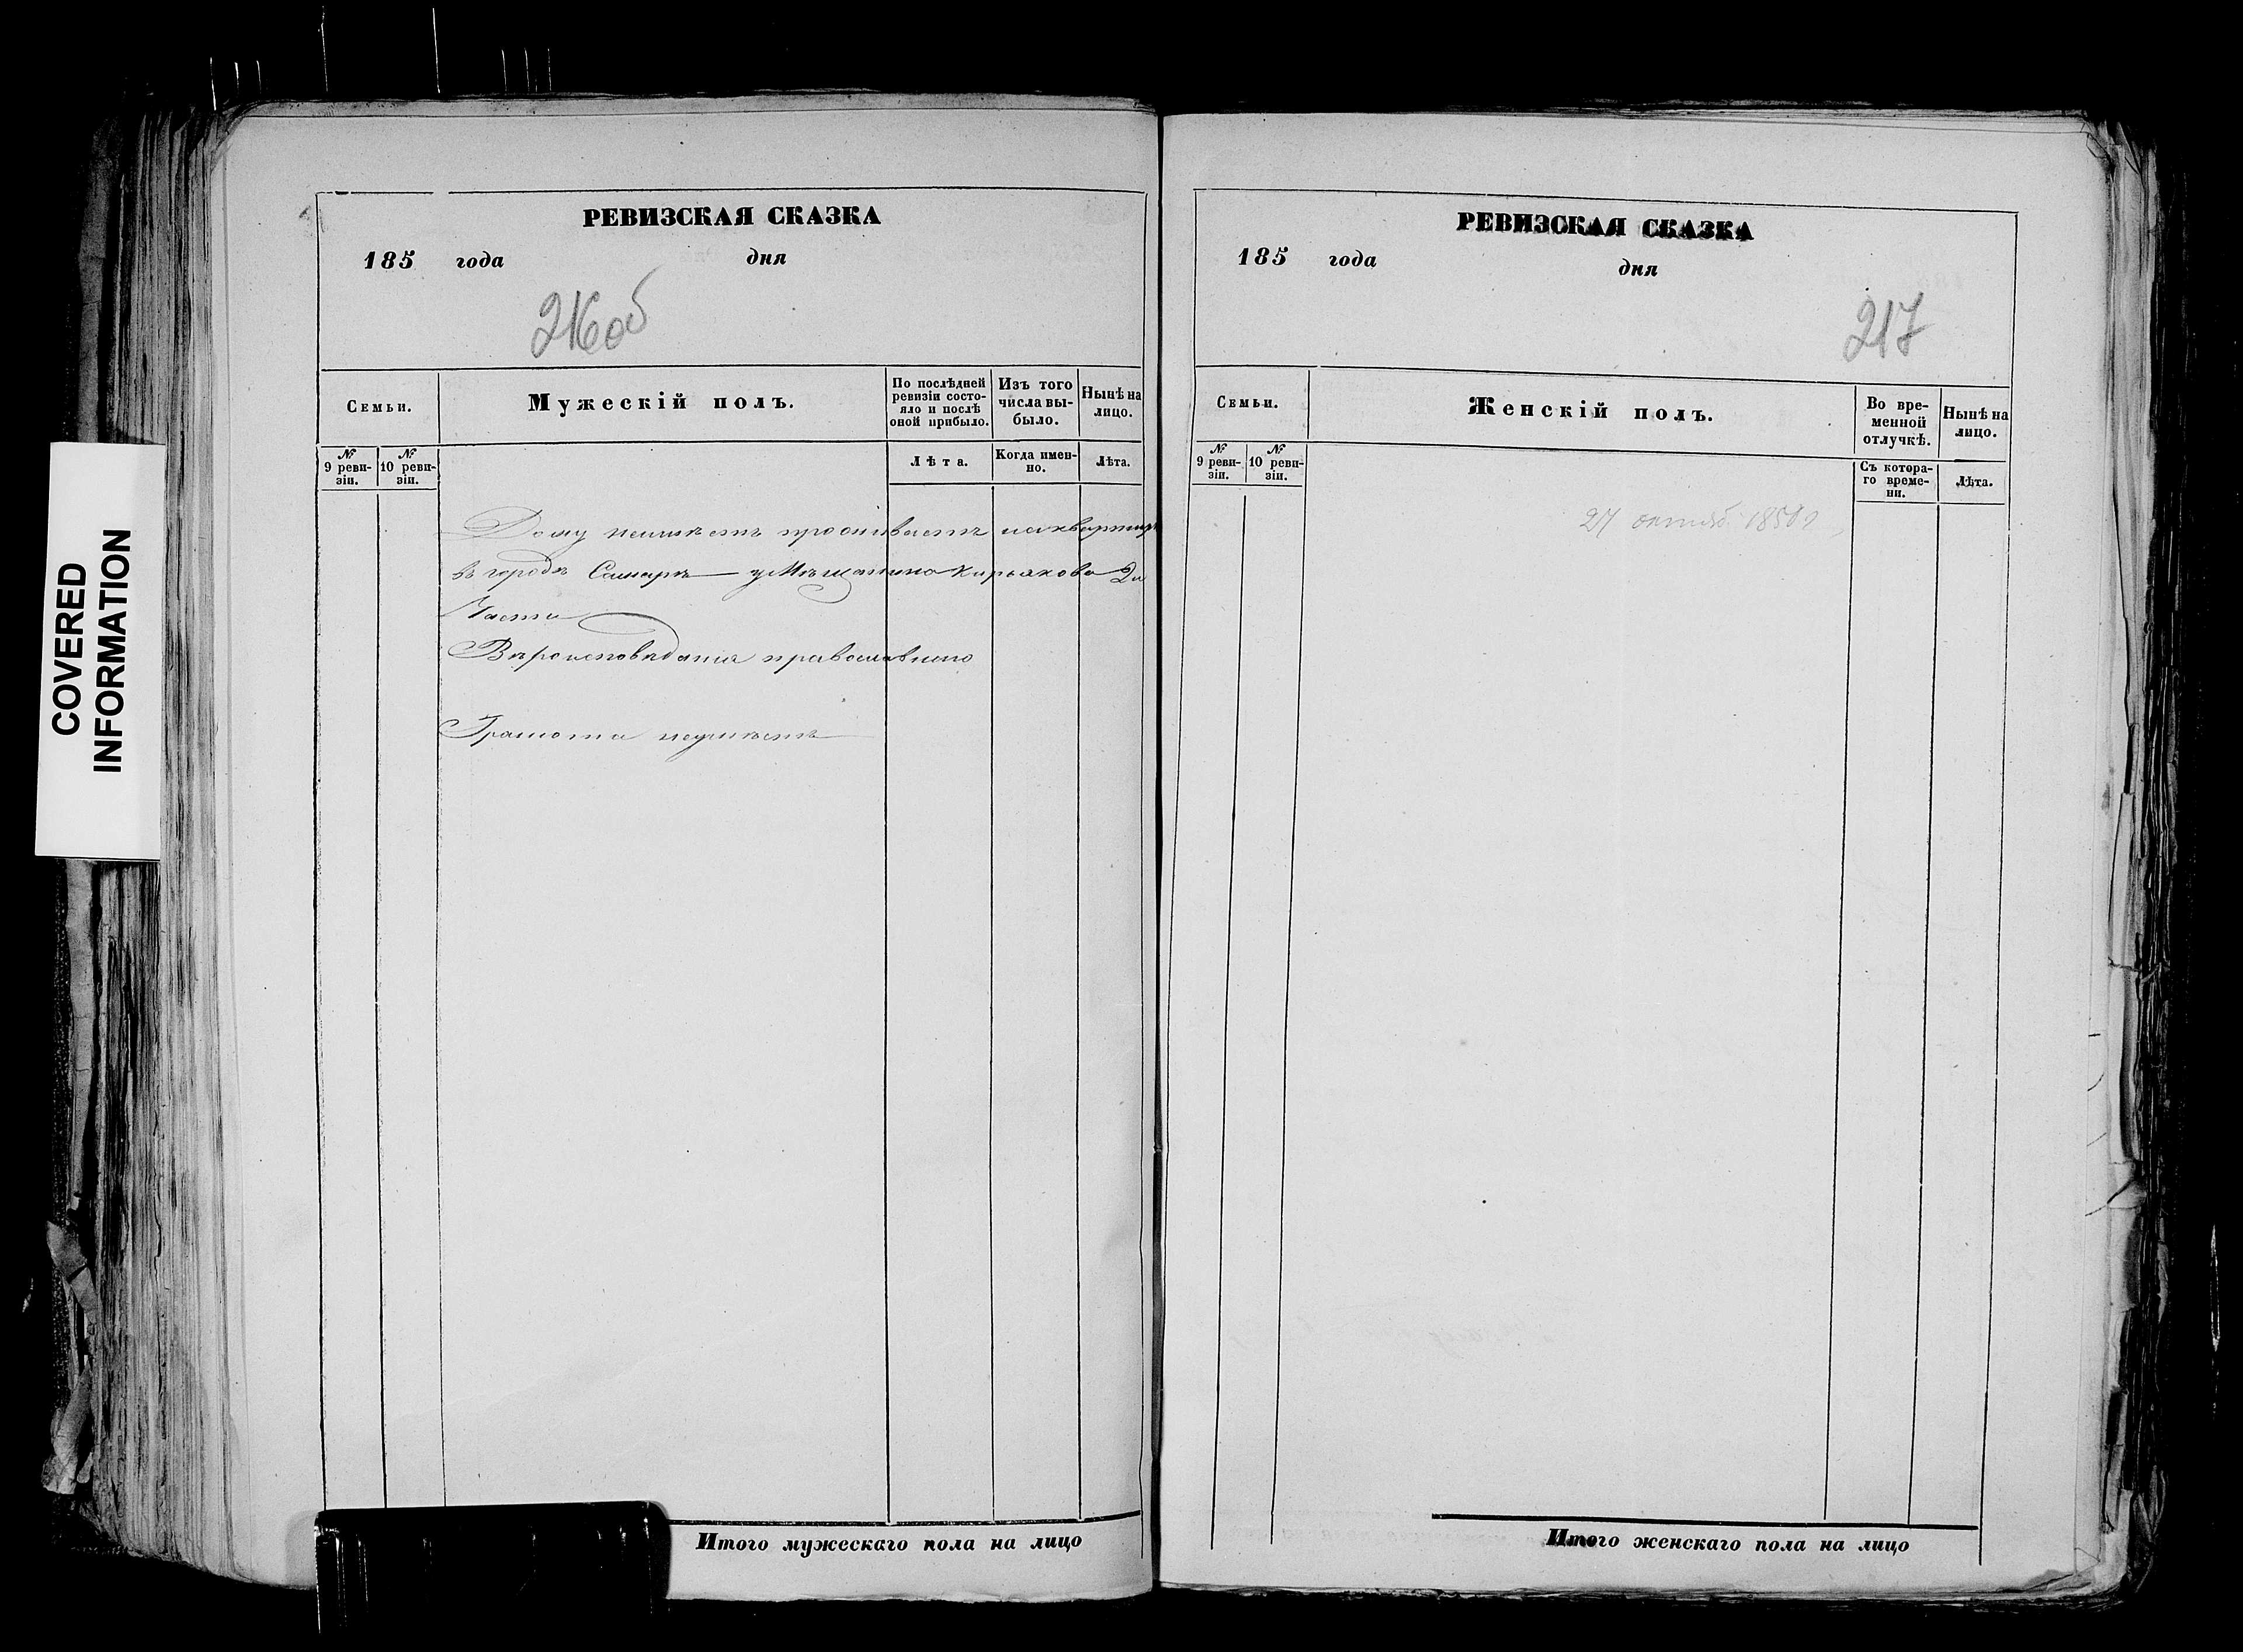 COVERED
INFORMATION
РЕВИЗСКАЯ СКАЗКА
185 года дня
216об
Семьи.
Мужескій полъ.
По послѣдней ревизіи состо-
яло и послѣ оной прибыло.
Изъ того числа вы-
было.
Нынѣ на лицо.
№ 9 реви-
зіи.
№ 10 реви-
зіи.
Лѣта.
Когда имен-
но.
Лѣта.
Дому неимѣетъ проживаетъ наквартир
въ городѣ Самарѣ уМѣщанина Кирьякова 2й
Части
Вѣроисповѣданія православнаго
Грамоти неумѣетъ
Итого мужескаго пола на лицо
РЕВИЗСКАЯ СКАЗКА
185 года дня
217
Семьи.
Женскій полъ.
Во вре-
менной
отлучкѣ.
Нынѣ на
лицо.
№ 9 реви-
зіи.
№ 10 реви-
зіи.
Съ котора-
го време-
ни.
Лѣта.
27 октяб. 1858 г
Итого женскаго пола на лицо